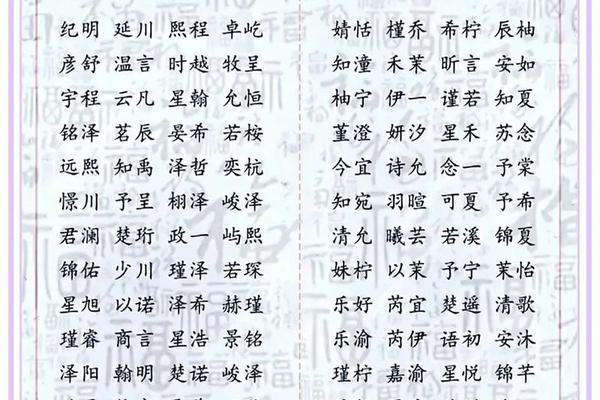 纪明 延川 熙程 卓屹
彦舒 温言 时越 牧呈
宇程 云凡 星翰 允恒
铭泽 茗辰 晏希 若桉
远熙 知禹 泽哲 奕杭
憬川 予呈 栩泽 峻泽
君澜 楚珩 政一 屿熙
锦佑 少川 瑾泽 若琛
星旭 以诺 泽希 赫瑾
瑾睿 商言 星浩 景铭
泽阳 翰明 楚诺 峻泽
婧恬 槿乔 希柠 辰柚
知潼 禾茉 昕言 安如
柚宁 伊一 谨若 知夏
董澄 妍汐 星禾 苏念
今宜 诗允 念一 予棠
知宛 羽暄 可夏 予希
清允 曦芸 若溪 锦夏
妹柠 以茉 予宁 茉怡
乐好 芮宜 楚遥 清歌
乐渝 芮伊 语初 安沐
瑾柠 嘉渝 星悦 锦芊